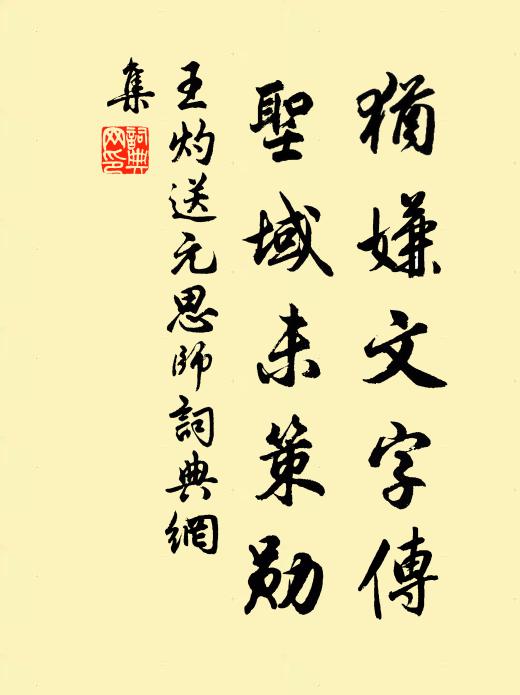 猶嫌文字傳
聖域未策勛
王灼送元思師詞典網
集
詞典
网印